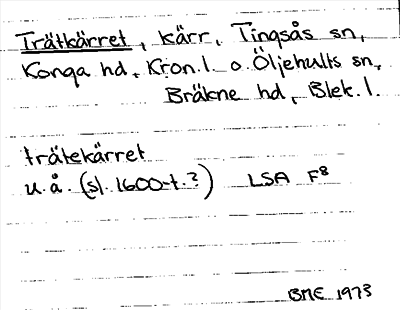 Trätkärret, kärr, Tingsås sn,
Konga hd, Kron. l. o. Öljehults sn,
Bräkne hd, Blek. l.
trätekärret
u. å. (sl. 1600-t.?) LSA F8
BME 1973